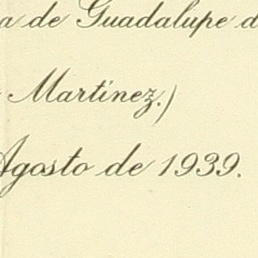 a de Guadalupe d
Martínez.)
Agosto de 1939.